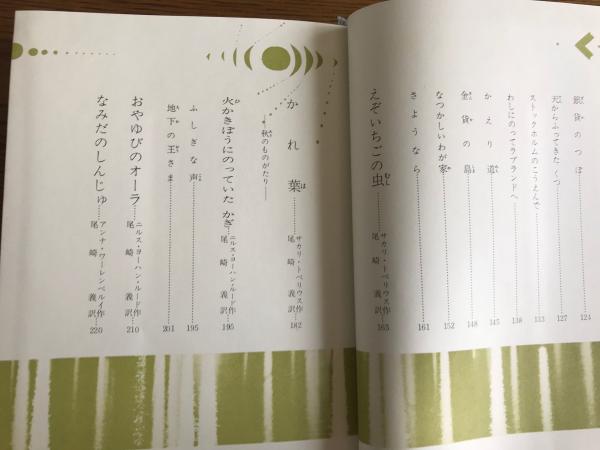 銀貨のつぼ……124
天からふってきたくつ……127
ストックホルムのこうえんで……133
わしにのってラプランドへ……138
かえり道……145
金貨の島……148
なつかしいわが家……152
さようなら……161
えぞいちごの虫……サカリ・トペリウス作 尾崎義訳……163
かれ葉……サカリ・トペリウス作 尾崎義訳……182
―秋のものがたり―
火かきぼうにのっていたかぎ……ニルス・ヨーハン・ルード作 尾崎義訳……195
ふしぎな声……195
地下の王さま……201
おやゆびのオーラ……ニルス・ヨーハン・ルード作 尾崎義訳……210
なみだのしんじゅ……アンナ・ワーレンベルイ作 尾崎義訳……220